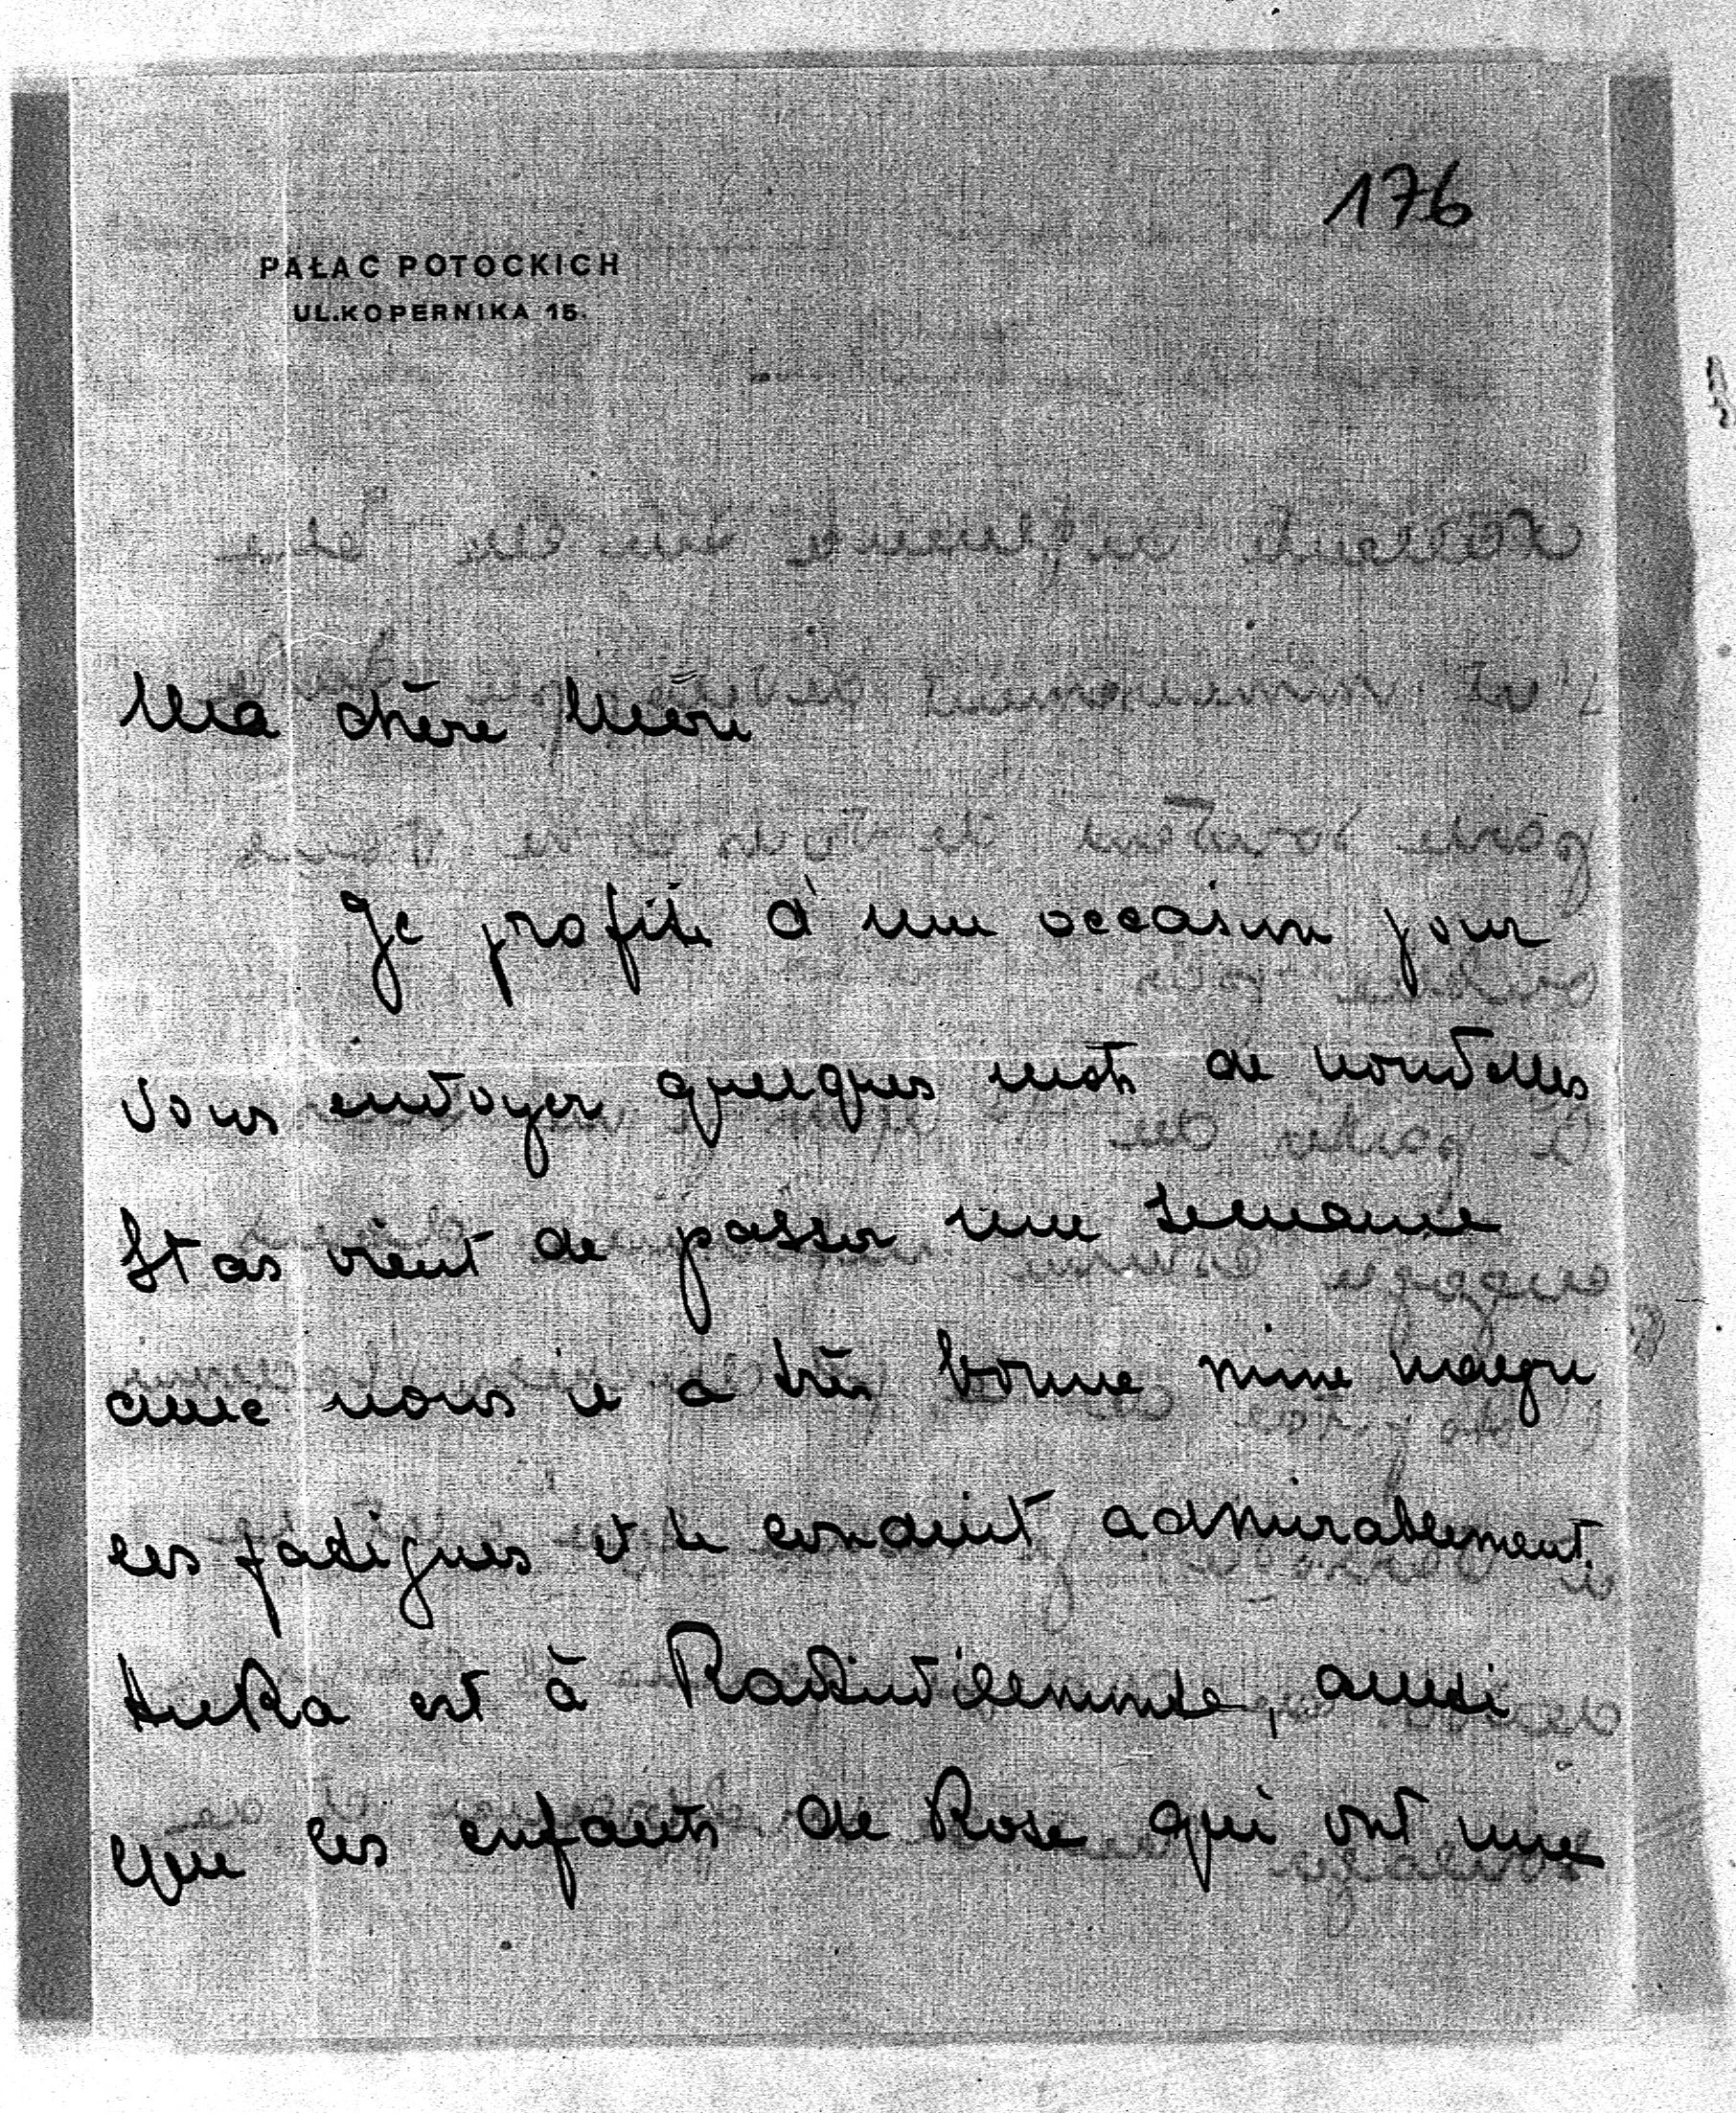 176
PAŁAC POTOCKICH
UL.KOPERNIKA 15.
Ma chère Mère
Je profite d'une occasion pour
vous envoyer quelques mots de nouvelles
Stas vient de passer une semaine
avec nous il a très bonne mine malgré
les fatigues et se conduit admirablement.
est à Radziwillmonte, aussi
que les enfants de Rose qui ont une